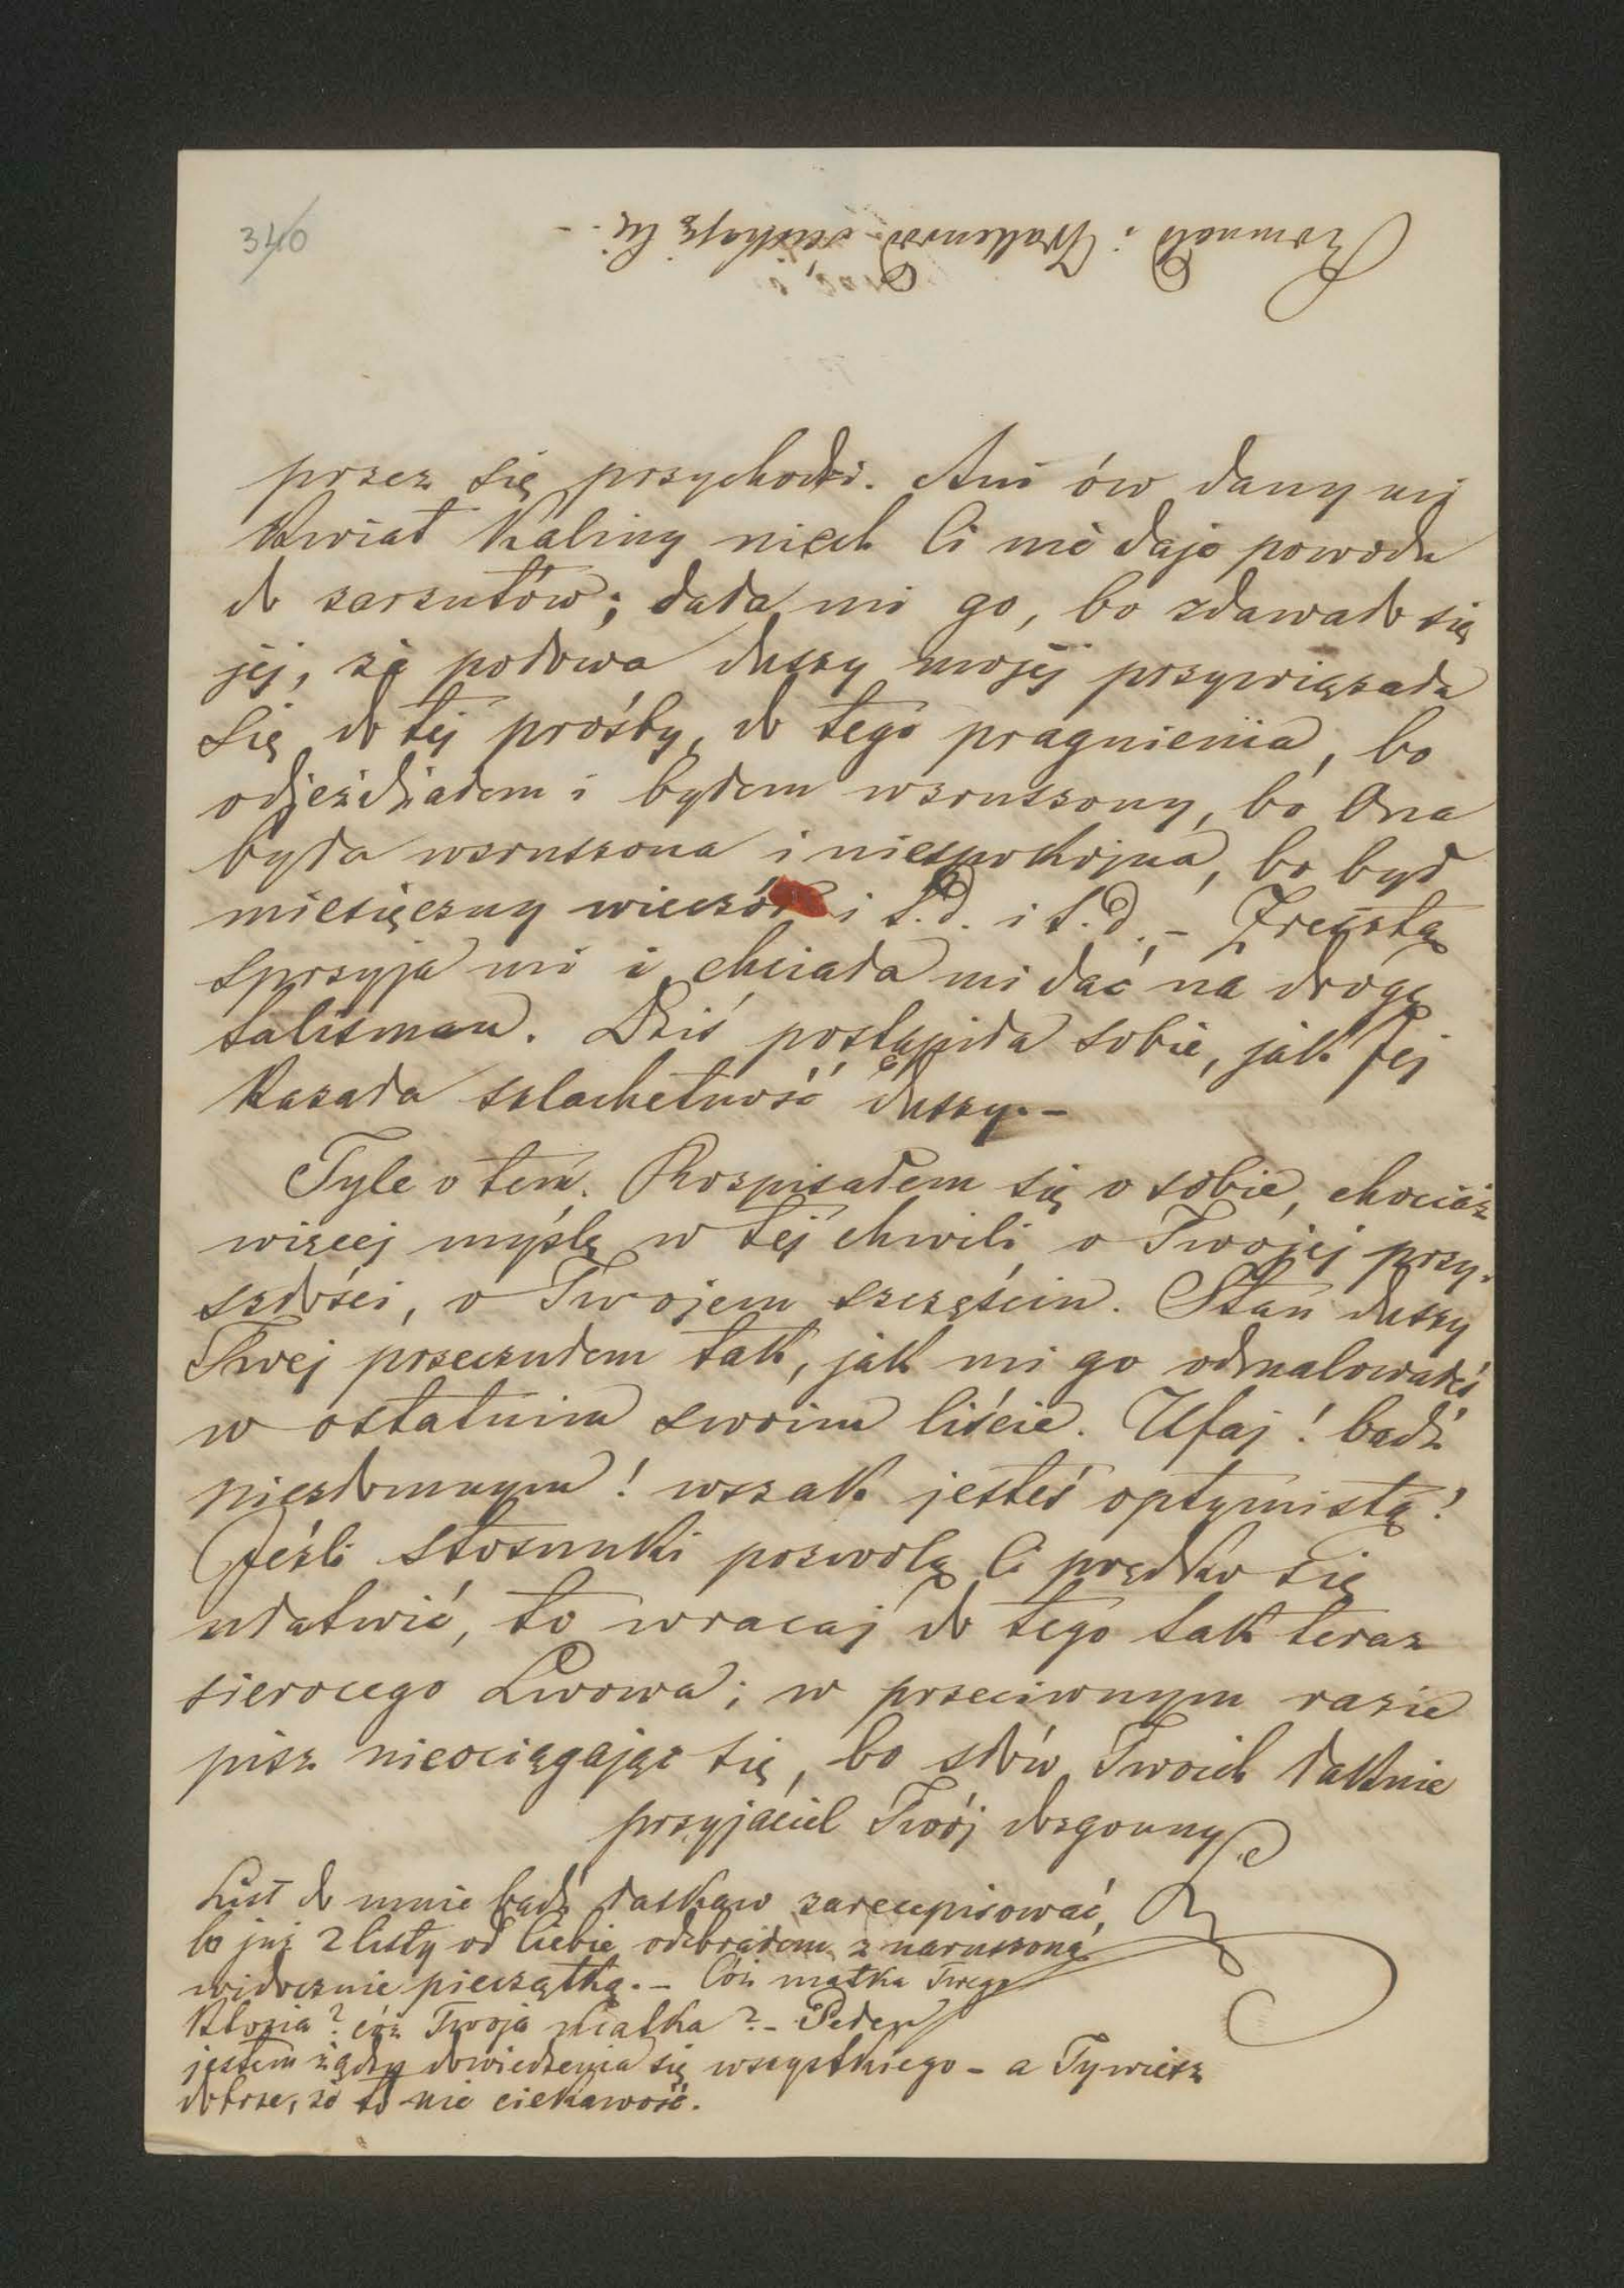 340
Romuald i Walenrod ściskają Cię. –
przez się przychodzi. Ani ów dany mi
kwiat kaliny niech Ci nie daje powodu
do zarzutów; dała mi go, bo zdawało się
jej, że połowa duszy mojej przywiązała
się do tej prośby, do tego pragnienia, bo
odjeżdżałem i byłem wzruszony, bo Ona
była wzruszona i niespokojna, bo był
miesięczny wieczór i t.d. i t.d. – Zresztą
sprzyja mi i chciała mi dać na drogę
talisman. Dziś postąpiła sobie, jak Jej
kazała szlachetność duszy. –
Tyle o tém. Rozpisałem się o sobie, chociaż
więcej myślę w tej chwili o Twojej przy-
szłości, o Twojem szczęściu. Stan duszy
Twej przeczułem tak, jak mi go odmalowałeś
w ostatnim swoim liście. Ufaj! bądź
niezłomnym! wszak jesteś optymistą!
Jeźli stosunki pozwolą Ci prędko się
ułatwić, to wracaj do tego tak teraz
sierocego Lwowa; w przeciwnym razie
pisz nieociągając się, bo słów Twoich łaknie
przyjaciel Twój dozgonny
List do mnie bądź łaskaw zarecepisować,
bo już 2 listy od Ciebie odebrałem z naruszoną
widocznie pieczątką. – Cóż matka Twego
Klozia? cóż Twoja matka? – Pełen
jestem żądzy dowiedzenia się wszystkiego – a Ty wiesz
dobrze, że to nie ciekawość.